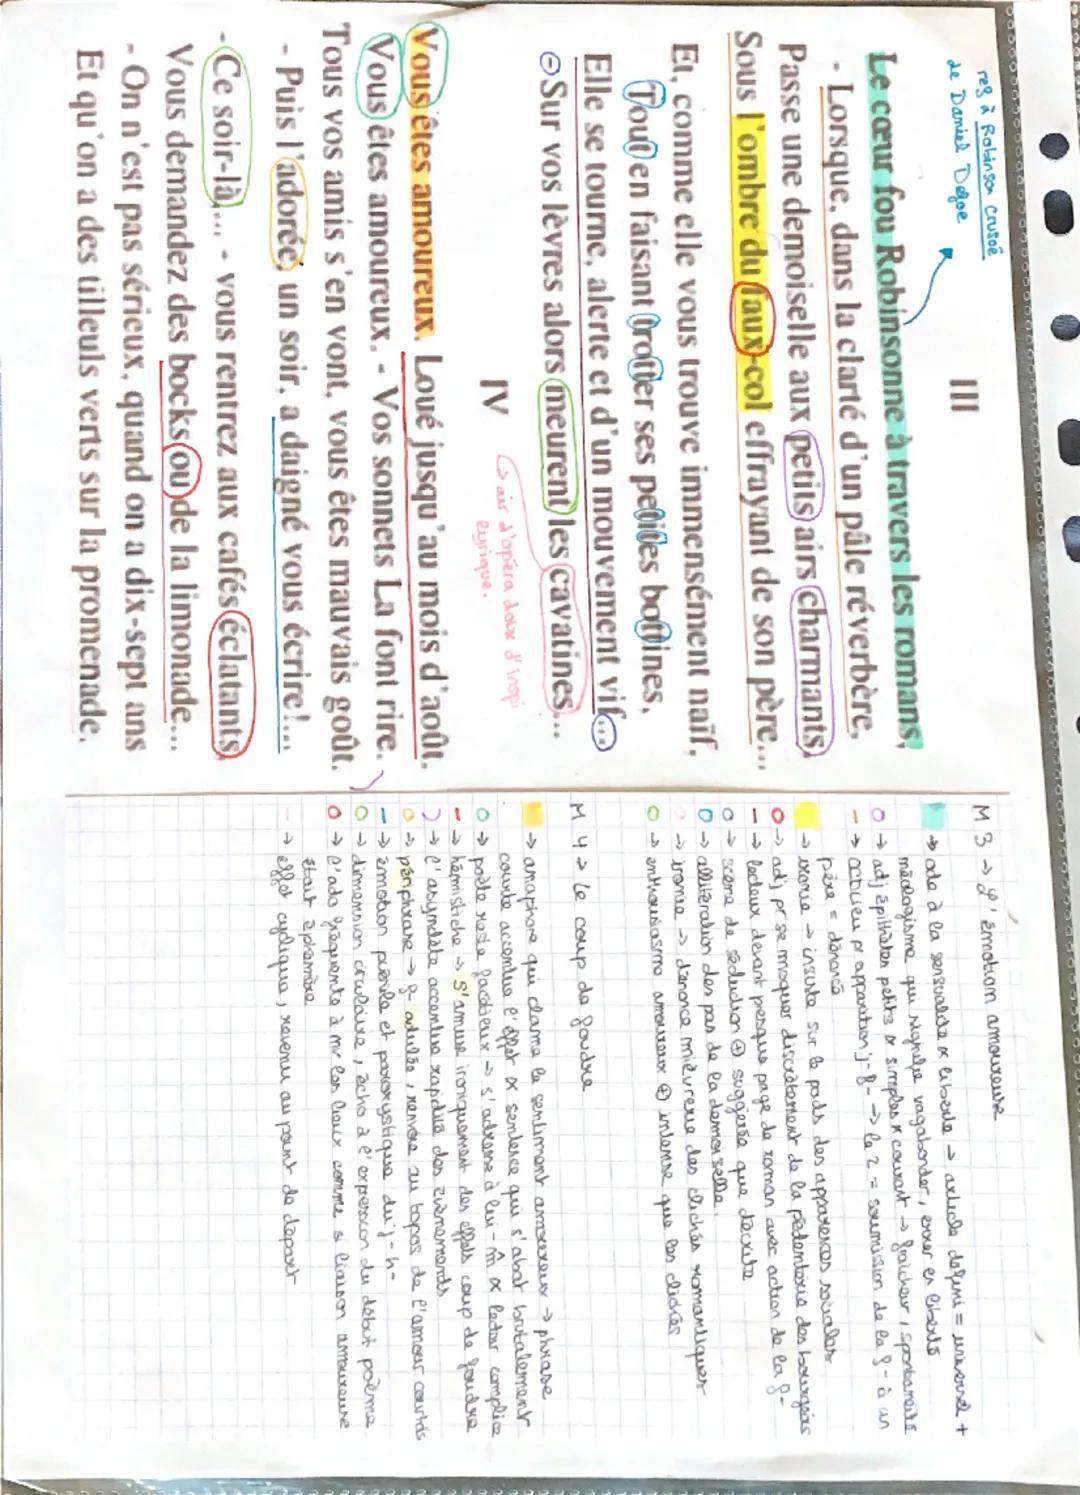 réf à Robinson Crusoé
de Daniel Defoe
III
Le cœur fou Robinsonne à travers les romans,
- Lorsque, dans la clarté d'un pâle réverbère,
Passe une demoiselle aux petits airs charmants,
Sous l'ombre du faux-col effrayant de son père...
Et, comme elle vous trouve immensément naïf,
Tout en faisant trotter ses petites bottines,
Elle se tourne, alerte et d'un mouvement vif...
⊖ Sur vos lèvres alors meurent les cavatines...
↳ air d'opéra doux d'inspi
lyrique.
IV
Vous êtes amoureux. Loué jusqu'au mois d'août.
Vous êtes amoureux. - Vos sonnets La font rire.
Tous vos amis s'en vont, vous êtes mauvais goût.
- Puis l'adorée, un soir, a daigné vous écrire!...
- Ce soir-là,... - vous rentrez aux cafés éclatants,
Vous demandez des bocks ou de la limonade...
- On n'est pas sérieux, quand on a dix-sept ans
Et qu'on a des tilleuls verts sur la promenade.
M 3 → L'émotion amoureuse
→ ode à la sensualité x liberté → article défini = universel +
néologisme qui signifie vagabonder, errer en liberté
→ adj épithètes petits x simples x courant → fraicheur, spontanéité
→ accueil pr apparition j-f- → le 2 = soumission de la f- à un
père = dénoncé
→ ironie → insiste sur le poids des apparences sociales
→ adj pr se moquer discrètement de la pédanterie des bourgeois
→ lecteur devant presque page de roman avec action de la f-
→ scène de séduction ⊕ suggérée que décrite
→ allitération des pas de la demoiselle
→ ironie → dénonce mièvrerie des clichés romantiques
→ enthousiasme amoureux ⊕ intense que les clichés
M 4 → le coup de foudre
→ anaphore qui clame le sentiment amoureux → phrase
courte accentue l'effet x sentence qui s'abat brutalement
→ poète reste facétieux → s'adresse à lui-m̂ x lecteur complice
→ hémistiche → s'amuse ironiquement des effets coup de foudre
→ l'asyndète accentue rapidité des évènements
→ périphrase → f- adulée, renvoie au topos de l'amour courtois
→ émotion puérile et paroxystique du j-h-
→ dimension circulaire, écho à l'expression du début poème
→ l'ado fréquente à nv les lieux comme si liaison amoureuse
était éphémère
→ effet cyclique, revenu au point de départ